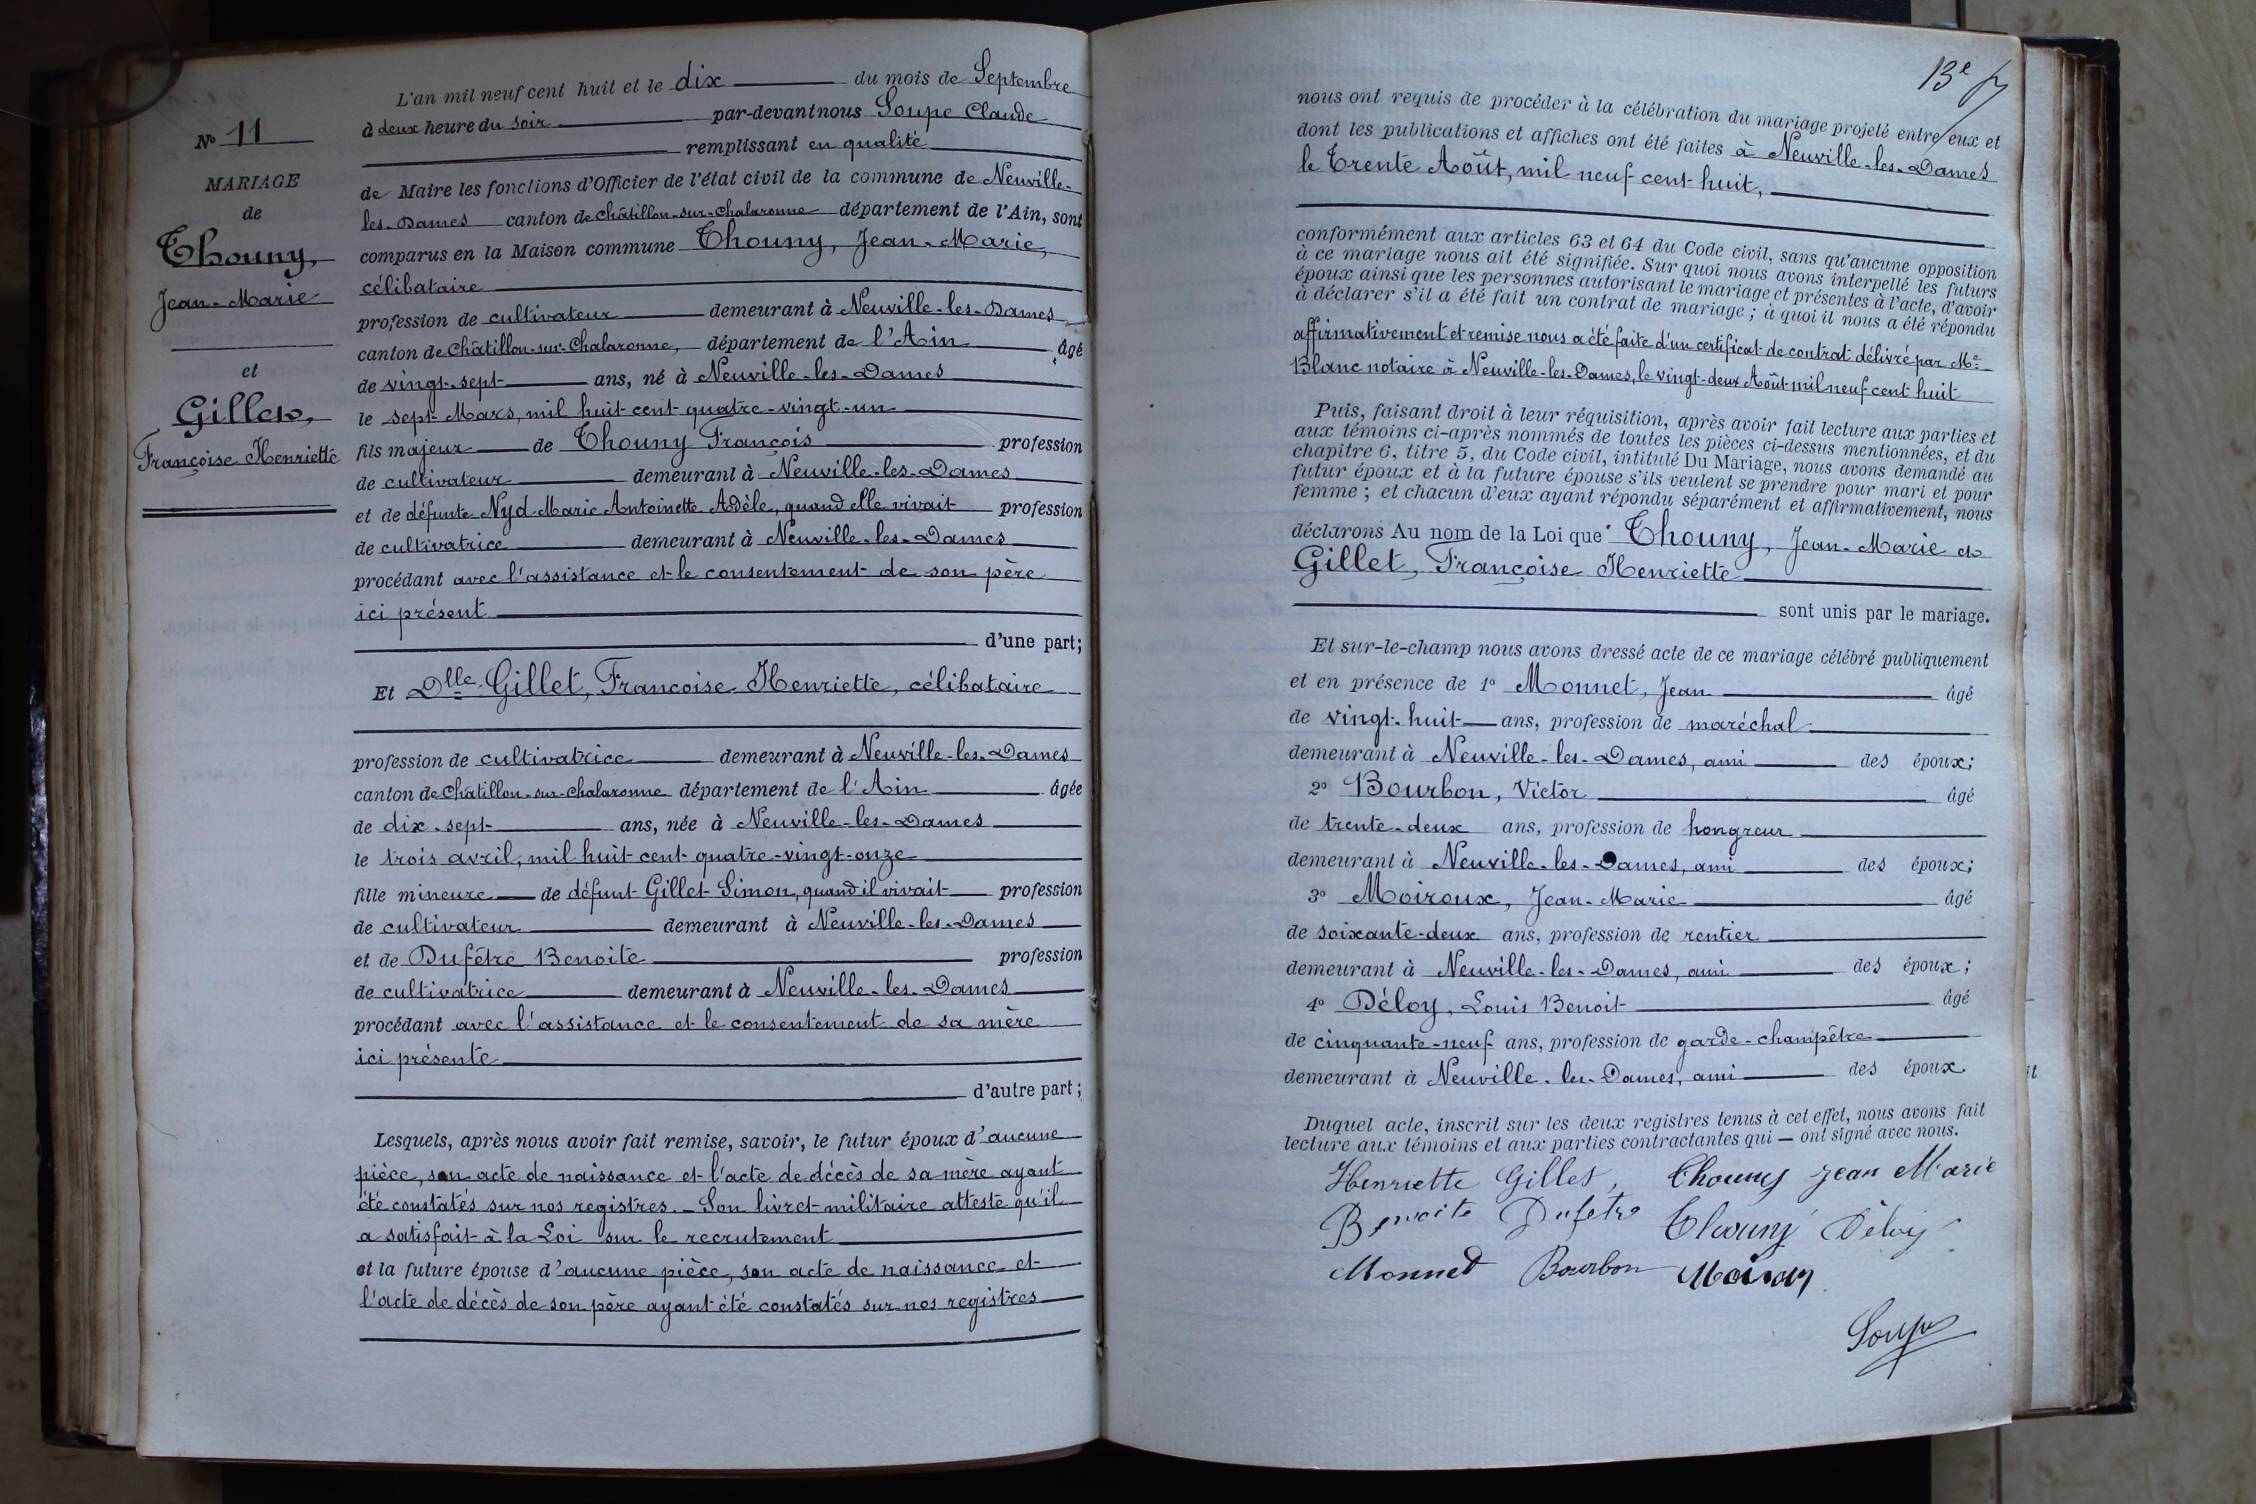 L'an mil neuf cent huit et le dix du mois de Septembre
à deux heure du soir par-devant nous Soupe Claude
remplissant en qualité
de Maire les fonctions d'Officier de l'état civil de la commune de Neuville-
les-Dames canton de Châtillon-sur-Chalaronne département de l'Ain, sont
comparus en la Maison commune Thouny, Jean-Marie,
célibataire
profession de cultivateur demeurant à Neuville-les-Dames
canton de Châtillon-sur-Chalaronne, département de l'Ain âgé
de vingt-sept ans, né à Neuville-les-Dames
le sept Mars, mil huit cent quatre-vingt-un
fils majeur de Thouny François profession
de cultivateur demeurant à Neuville-les-Dames
et de défunte Nyd Marie Antoinette Adèle, quand elle vivait profession
de cultivatrice demeurant à Neuville-les-Dames
procédant avec l'assistance et le consentement de son père
ici présent
d'une part;
Et Dlle Gillet, Françoise Henriette, célibataire
profession de cultivatrice demeurant à Neuville-les-Dames
canton de Châtillon-sur-Chalaronne département de l'Ain âgée
de dix-sept ans, née à Neuville-les-Dames
le trois avril, mil huit cent quatre-vingt-onze
fille mineure de défunt Gillet Simon, quand il vivait profession
de cultivateur demeurant à Neuville-les-Dames
et de Dufêtre Benoite profession
de cultivatrice demeurant à Neuville-les-Dames
procédant avec l'assistance et le consentement de sa mère
ici présente
d'autre part;
Lesquels, après nous avoir fait remise, savoir, le futur époux d'aucune
pièce, son acte de naissance et l'acte de décès de sa mère ayant
été constatés sur nos registres. - Son livret militaire atteste qu'il
a satisfait à la Loi sur le recrutement
et la future épouse d'aucune pièce, son acte de naissance et
l'acte de décès de son père ayant été constatés sur nos registres
No 11
MARIAGE
de
Thouny,
Jean-Marie
et
Gillet,
Françoise Henriette
13e
nous ont requis de procéder à la célébration du mariage projeté entre eux et
dont les publications et affiches ont été faites à Neuville-les-Dames
le Trente Août, mil neuf cent huit,
conformément aux articles 63 et 64 du Code civil, sans qu'aucune opposition
à ce mariage nous ait été signifiée. Sur quoi nous avons interpellé les futurs
époux ainsi que les personnes autorisant le mariage et présentes à l'acte, d'avoir
à déclarer s'il a été fait un contrat de mariage; à quoi il nous a été répondu
affirmativement et remise nous a été faite d'un certificat de contrat délivré par Me
Blanc notaire à Neuville-les-Dames, le vingt-deux Août mil neuf cent huit
Puis, faisant droit à leur réquisition, après avoir fait lecture aux parties et
aux témoins ci-après nommés de toutes les pièces ci-dessus mentionnées, et du
chapitre 6, titre 5, du Code civil, intitulé Du Mariage, nous avons demandé au
futur époux et à la future épouse s'ils veulent se prendre pour mari et pour
femme; et chacun d'eux ayant répondu séparément et affirmativement, nous
déclarons Au nom de la Loi que Thouny, Jean-Marie et
Gillet, Françoise Henriette
sont unis par le mariage.
Et sur-le-champ nous avons dressé acte de ce mariage célébré publiquement
et en présence de 1o Monnet, Jean âgé
de vingt-huit ans, profession de maréchal
demeurant à Neuville-les-Dames, ami des époux;
2o Bourbon, Victor âgé
de trente-deux ans, profession de hongreur
demeurant à Neuville-les-Dames, ami des époux;
3o Moiroux, Jean-Marie âgé
de soixante-deux ans, profession de rentier
demeurant à Neuville-les-Dames, ami des époux;
4o Déloy, Louis Benoit âgé
de cinquante-neuf ans, profession de garde-champêtre
demeurant à Neuville-les-Dames, ami des époux.
Duquel acte, inscrit sur les deux registres tenus à cet effet, nous avons fait
lecture aux témoins et aux parties contractantes qui — ont signé avec nous.
Henriette Gillet, Thouny Jean Marie
Benoite Dufetre Thouny Déloy
Monnet Bourbon
Soupe